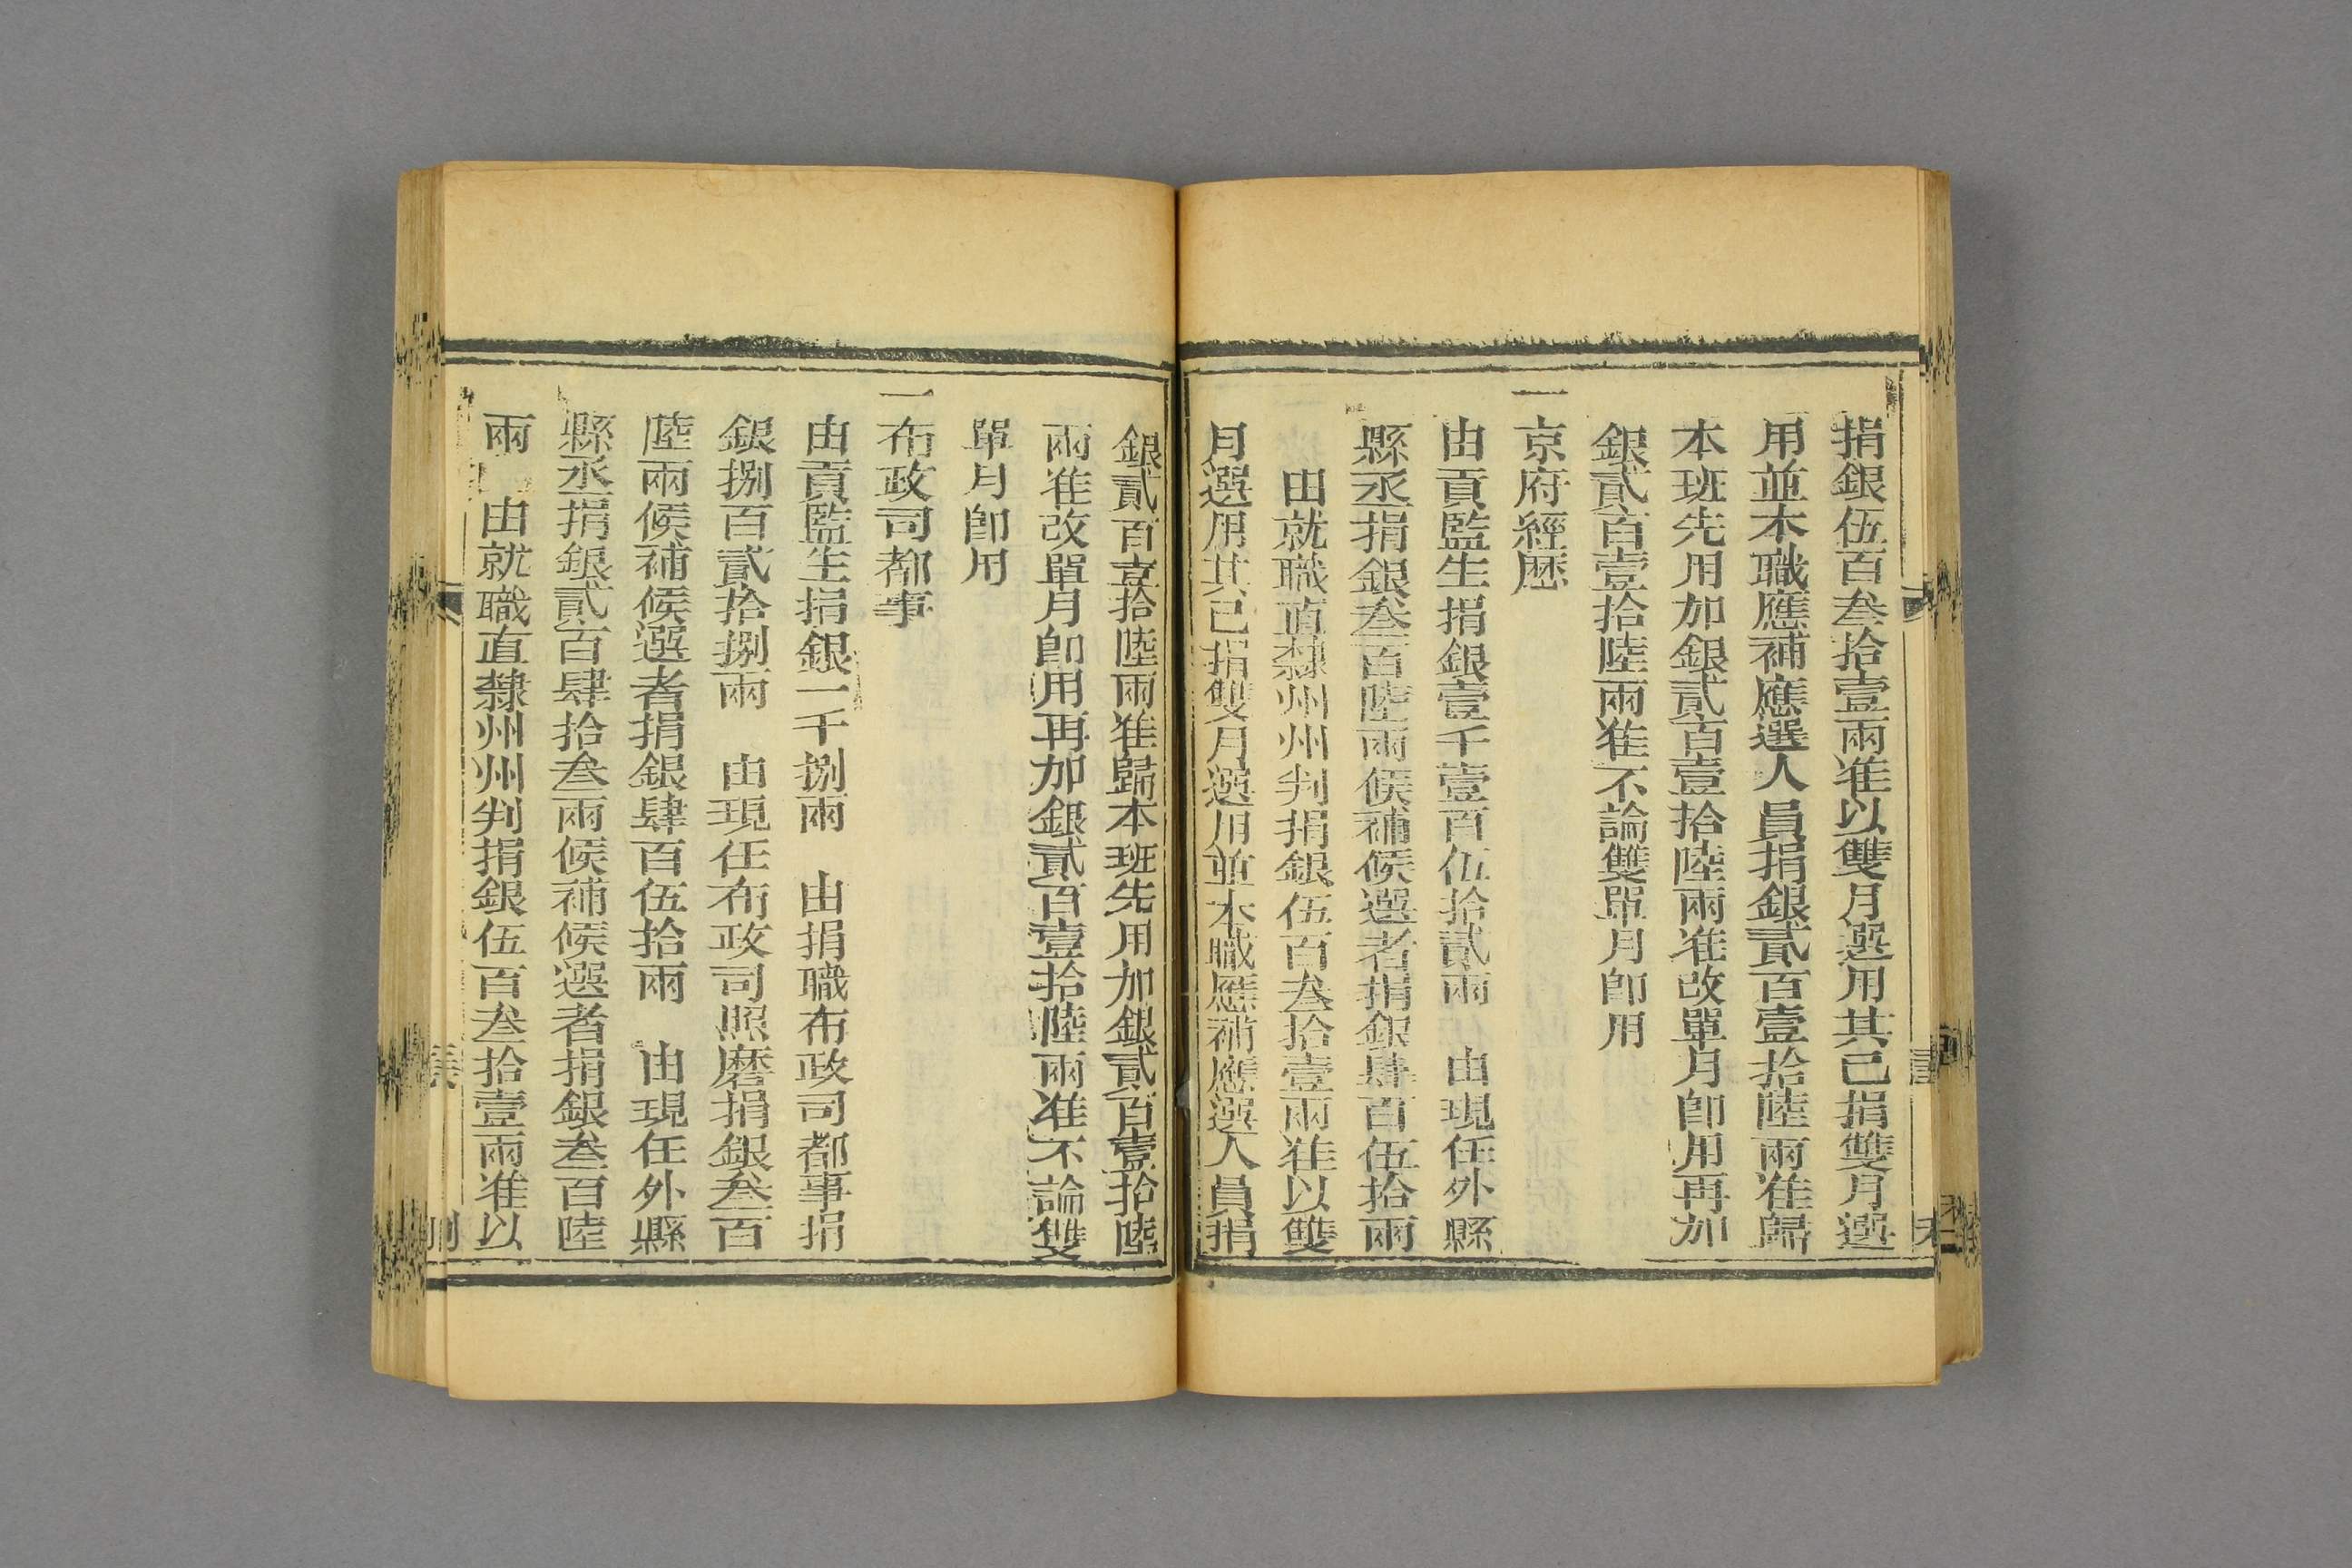 捐銀伍百叁拾壹兩准以雙月選用其已捐雙月選
用並本職應補應選人員捐銀貳百壹拾陸兩准歸
本班先用加銀貳百壹拾陸兩准改單月卽用再加
銀貳百壹拾陸兩准不論雙單月卽用
一京府經歷
由貢監生捐銀壹千壹百伍拾貳兩　由現任外縣
縣丞捐銀叁百陸兩候補候選者捐銀肆百伍拾兩
由就職直隸州州判捐銀伍百叁拾壹兩准以雙
月選用其已捐雙月選用並本職應補應選人員捐
銀貳百壹拾陸兩准歸本班先用加銀貳百壹拾陸
兩准改單月卽用再加銀貳百壹拾陸兩准不論雙
單月卽用
一布政司都事
由貢監生捐銀一千捌兩　由捐職布政司都事捐
銀捌百貳拾捌兩　由現任布政司照磨捐銀叁百
陸兩候補候選者捐銀肆百伍拾兩　由現任外縣
縣丞捐銀貳百肆拾叁兩候補候選者捐銀叁百陸
兩　由就職直隸州州判捐銀伍百叁拾壹兩准以